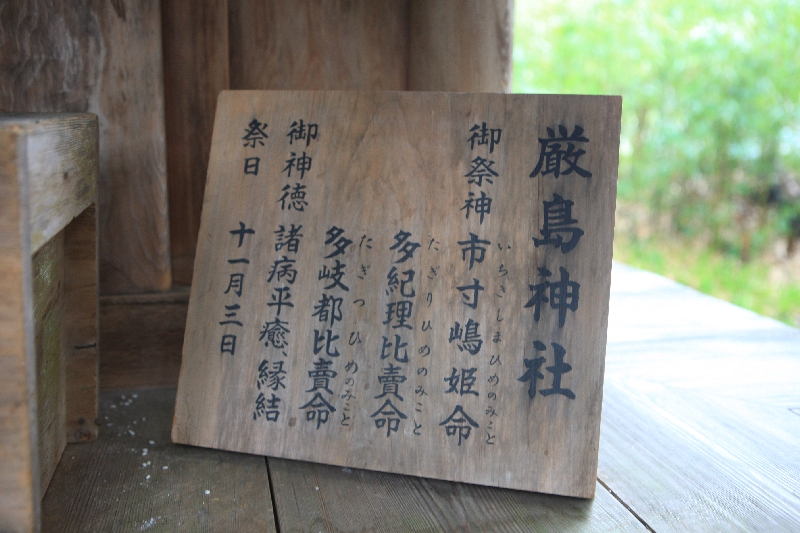 厳島神社
御祭神 市寸嶋姫命
いちきしまひめのみこと
多紀理比賣命
たぎりひめのみこと
多岐都比賣命
たぎつひめのみこと
御神徳 諸病平癒、縁結
祭日 十一月三日